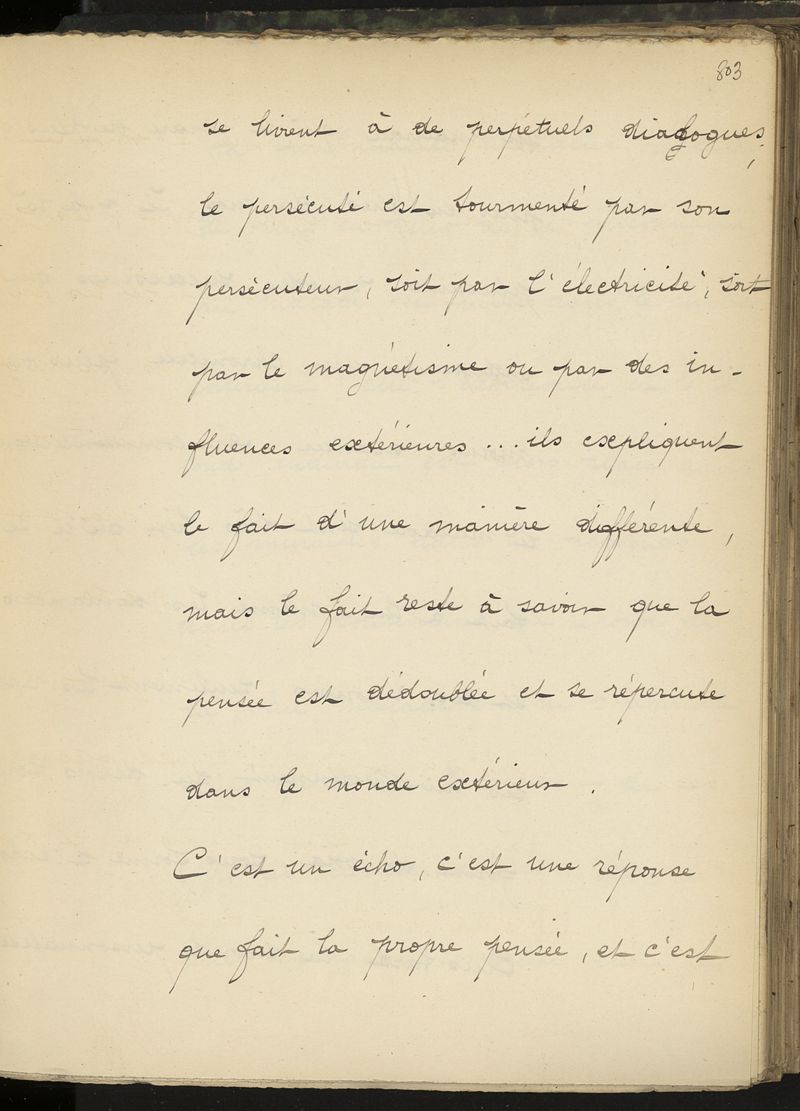 803
se livrent à de perpétuels dialogues;
le persécuté est tourmenté par son
persécuteur, soit par l'électricité, soit
par le magnétisme ou par des in-
fluences extérieures ... ils expliquent
le fait d'une manière différente,
mais le fait reste à savoir que la
pensée est dédoublée et se répercute
dans le monde extérieur.
C'est un écho, c'est une réponse
que fait la propre pensée, et c'est